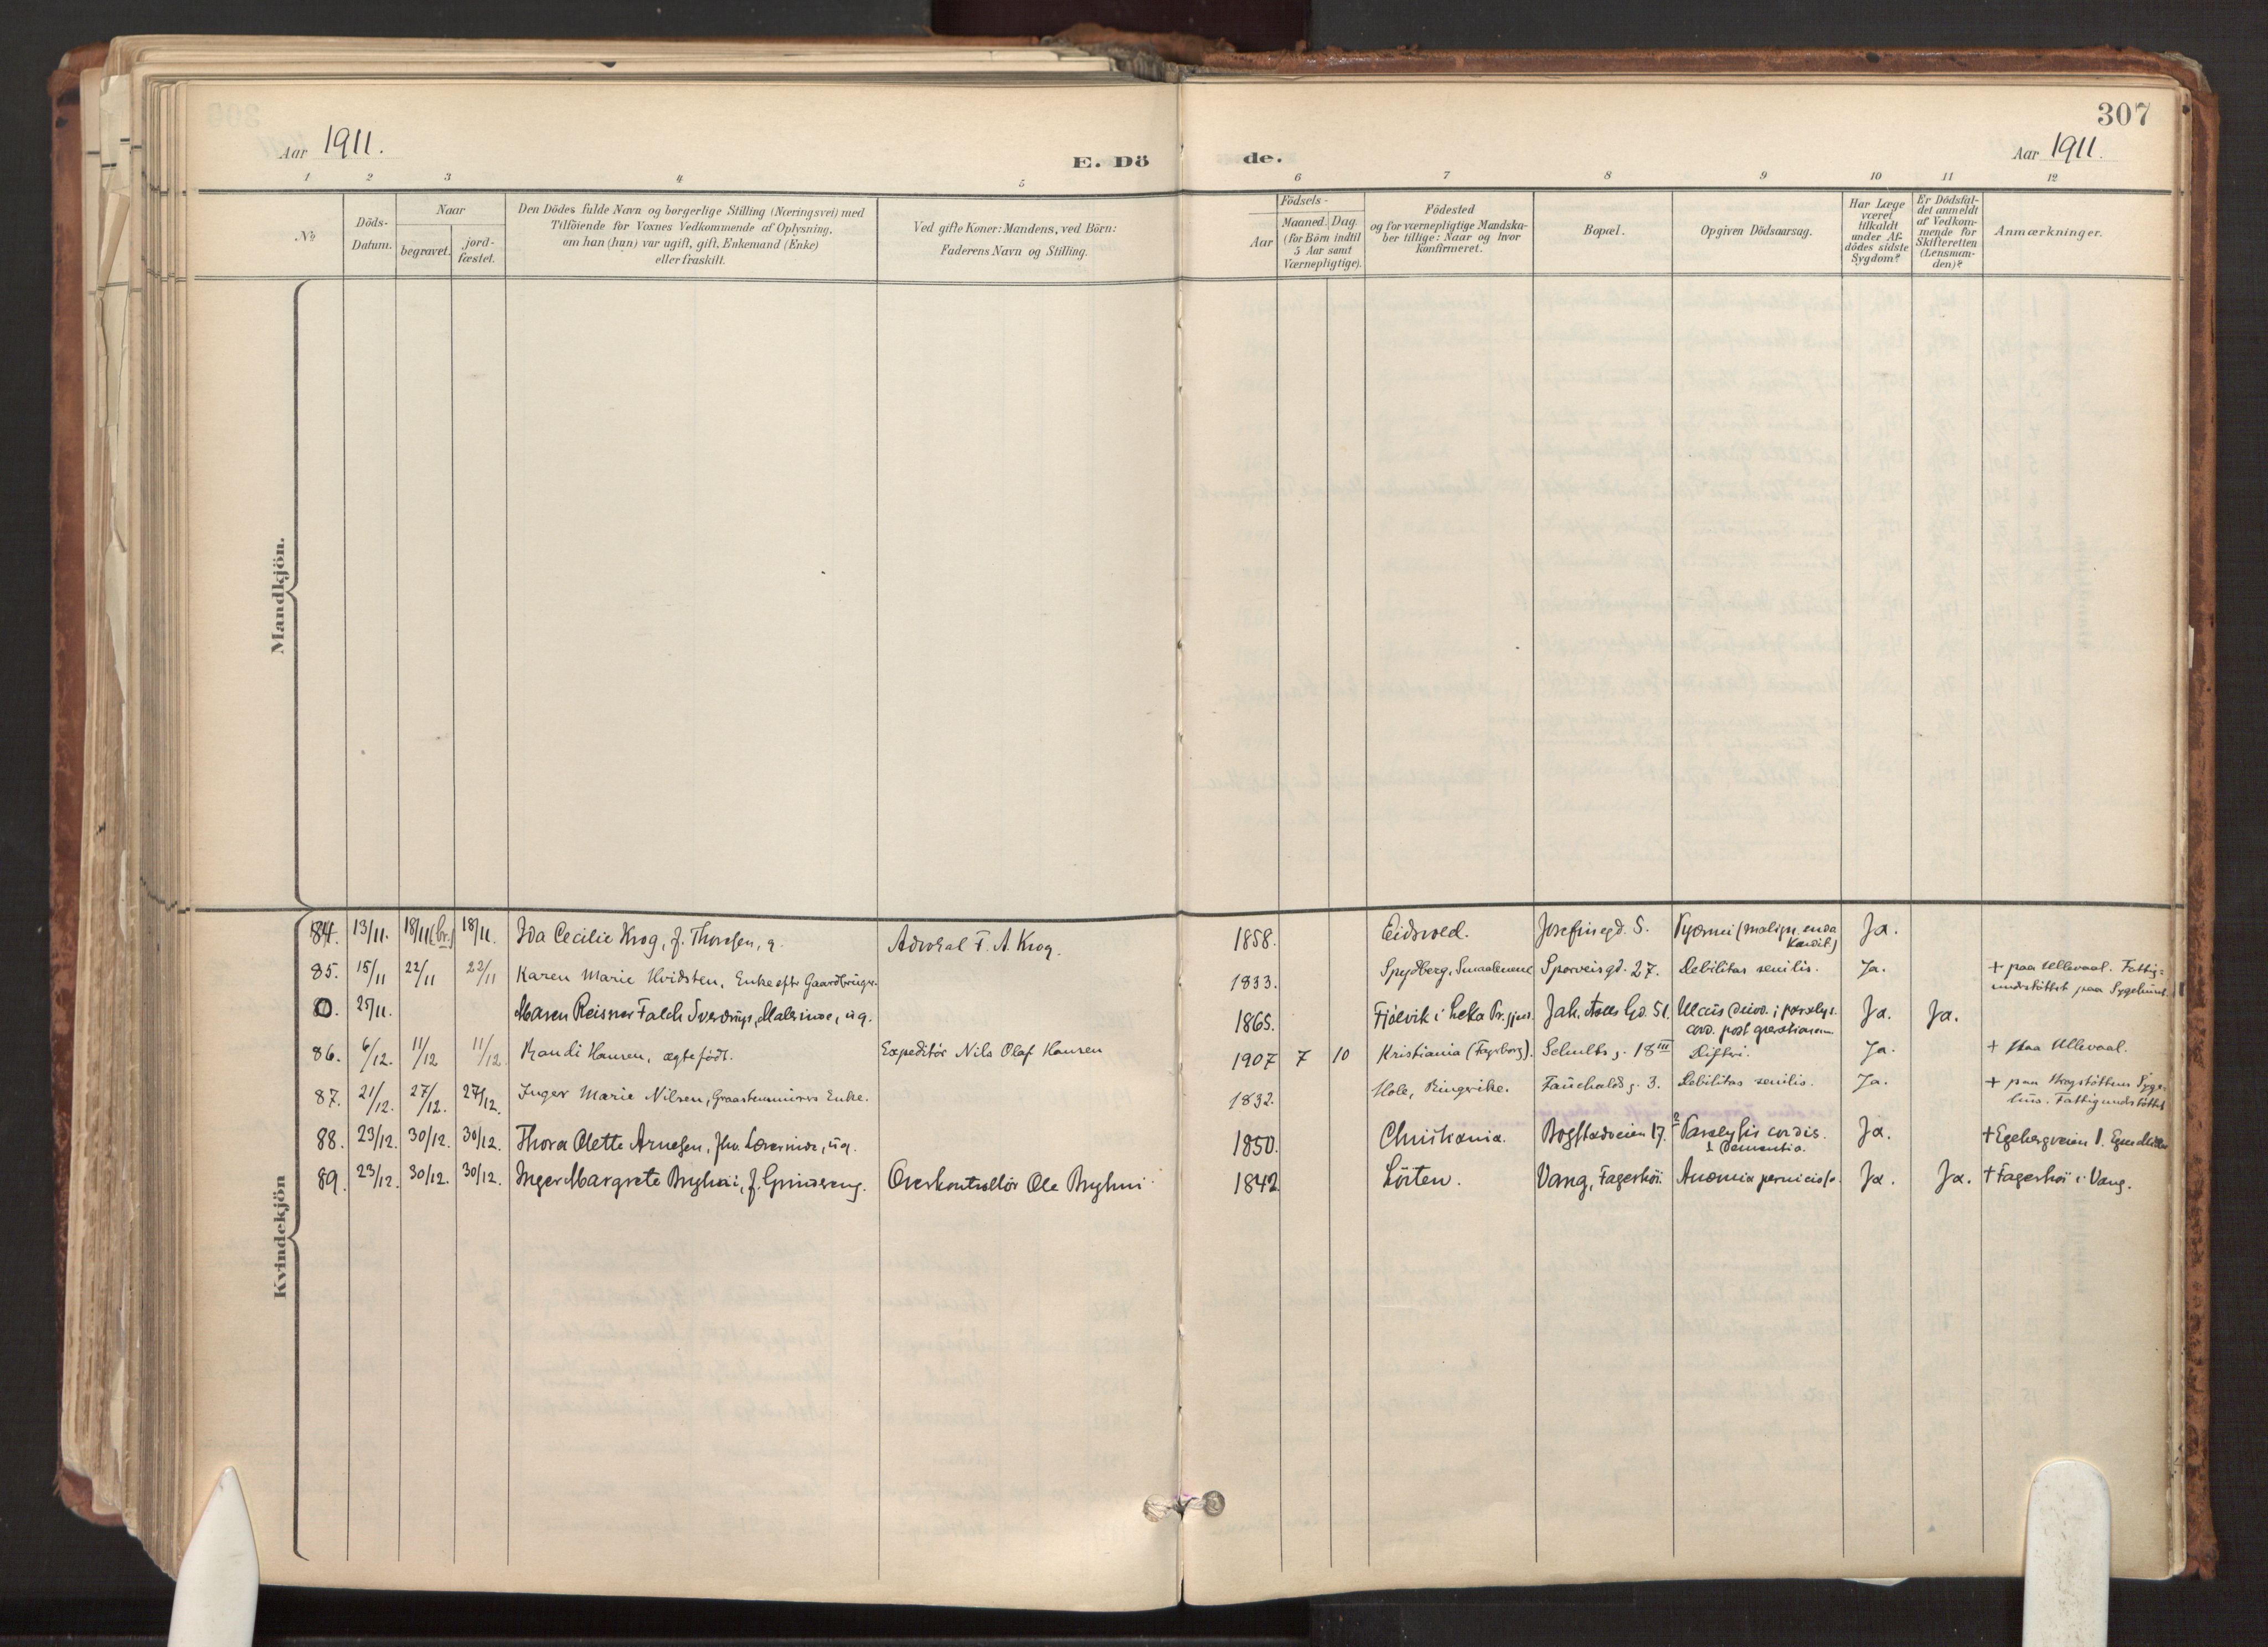 307
Aar 1911.
E. Dö
de.
Aar 1911.
1 2 3 4 5 6 7 8 9 10 11 12
№
Döds-
Datum.
Naar
begravet.
jord-
fæstet.
Den Dödes fulde Navn og borgerlige Stilling (Næringsvei) med
Tilföiende for Voxnes Vedkommende af Oplysning,
om han (hun) var ugift, gift, Enkemand (Enke)
eller fraskilt.
Ved gifte Koner: Mandens, ved Börn:
Faderens Navn og Stilling.
Födsels-
Aar
Maaned. Dag.
(for Börn indtil
5 Aar samt
Værnepligtige).
Födested
og for værnepligtige Mandska-
ber tillige: Naar og hvor
konfirmeret.
Bopæl.
Opgiven Dödsaarsag.
Har Læge
været
tilkaldt
under Af-
dödes sidste
Sygdom?
Er Dödsfal-
det anmeldt
af Vedkom-
mende for
Skifteretten
(Lensman-
den)?
Anmærkninger.
Mandkjön.
Kvindekjön
84. 13/11. 18/11 (br.) 18/11. Ida Cecilie Krog, f. Thoresen, g. Advokat F. A Krog. 1858. Eidsvold. Josefinegd. 5. Pyæmi (malign. endo
kardit) Ja.
85. 15/11 22/11 22/11 Karen Marie Hvidsten, Enke efte Gaardbruger. 1833. Spydberg, Smaalenene Sporveisgd. 27. Debilitas senilis. Ja. + paa Ullevaal. Fattig-
understöttet paa Sygehuset.
0. 25/11. Maren Reisner Falch Sverdrup, Malerinde, ug. 1865. Fjölvik i Leka Pr.gjeld. Jak. Aalls Gd. 51. Ulcus duod. i paralys.
cord. post operationem Ja. Ja.
86. 6/12. 11/12 11/12 Randi Hansen, ægtefödt. Expeditör Nils Olaf Hansen 1907 7 10 Kristiania (Fagerborg). Schults g. 18 III Difteri. Ja. + paa Ullevaal.
87. 21/12. 27/12. 27/12. Inger Marie Nilsen, Graastensminers Enke. 1832. Hole, Ringerike. Fauchalds g. 3. Debilitas senilis. Ja. + paa Krogstöttens Syge-
hus. Fattigunderstöttet
88. 23/12. 30/12. 30/12. Thora Olette Arnesen, fhv. Lærerinde, ug. 1850. Christiania. Bogstadveien 17. 2 Paralysis cordis.
1 Dementia. Ja. + Egebergveien 1.
89. 23/12. 30/12. 30/12. Inger Margrete Bryhni, f. Grindereng. Overkontrollör Ole Bryhni 1842 Löiten. Vang, Fagerhöi. Anæmia perniciosa Ja. Ja. + Fagerhöi i Vang.